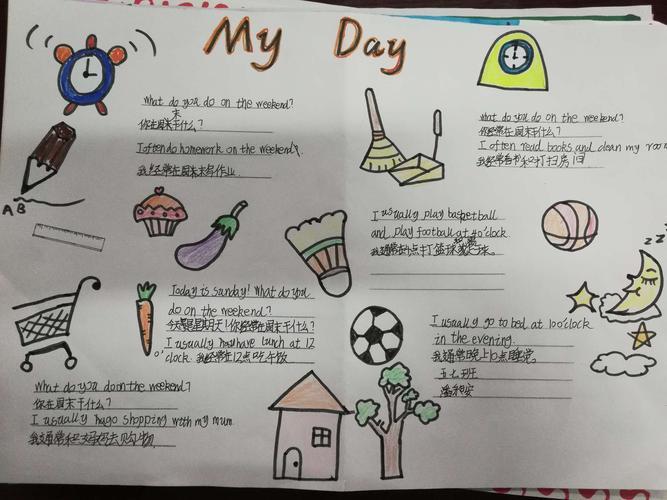 My Day
What do you do on the weekend?
你在周末干什么?
I often do homework on the weekend.
我经常在周末写作业.
AB
What do you do on the weekend?
你经常在周末干什么?
I often read books and clean my room
我经常 打扫房间
I usually play basketball
and play football at 4 o'clock
我通常在4点打篮球 球。
Today is sunday! What do you
do on the weekend?
今天是星期天!你经常在周末干什么?
I usually have lunch at 12
o'clock. 我经常在12点吃午饭
z z z
I usually go to bed at 10 o'clock
in the evening.
我通常晚上10点睡觉.
What do you do on the weekend?
你在周末干什么?
I usually go shopping with my mum.
我通常和妈妈去购物